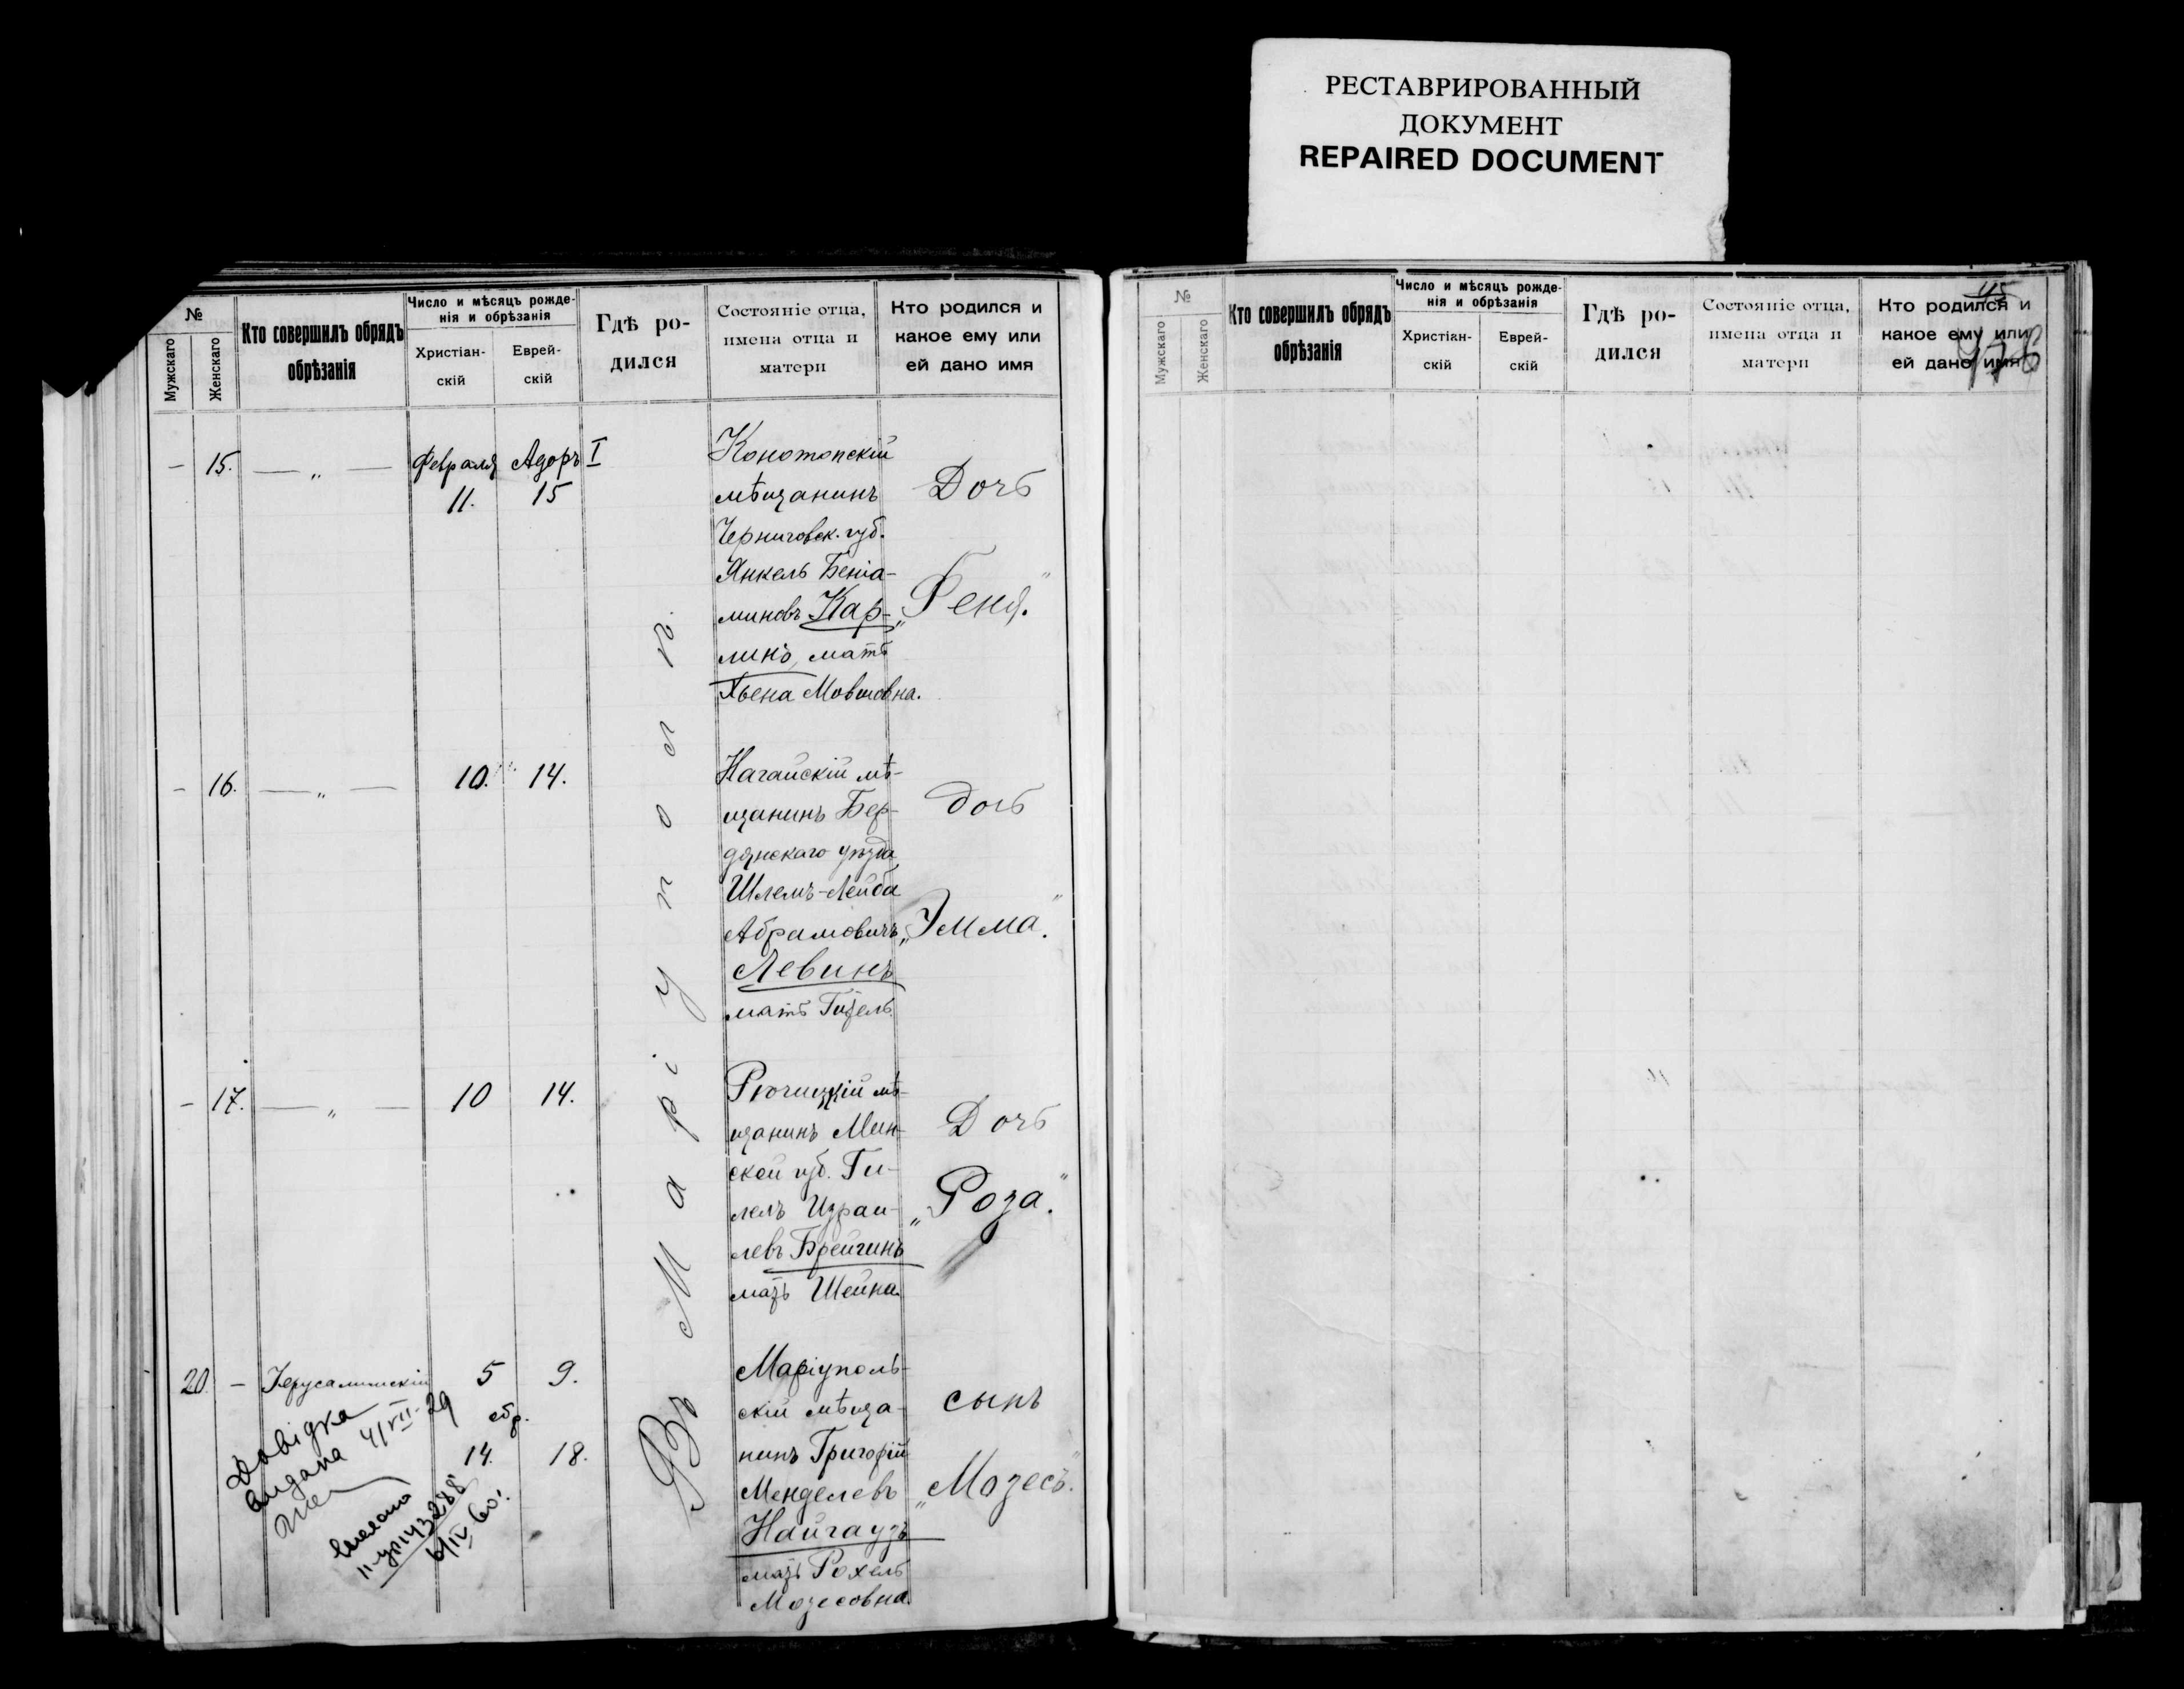 РЕСТАВРИРОВАННЫЙ
ДОКУМЕНТ
REPAIRED DOCUMENT
№
Мужскаго
Женскаго
Кто совершилъ обрядъ
обрѣзанія
Число и мѣсяцъ рожде-
нія и обрѣзанія
Христіан-
скій
Еврей-
скій
Гдѣ ро-
дился
Состояніе отца,
имена отца и
матери
Кто родился и
какое ему или
ей дано имя
Въ Маріуполѣ.
– 15. — „ —
Февраля Адоръ I
11. 15
Конотопскій
мѣщанинъ
Черниговск. губ.
Янкель Беніа-
миновъ Кар-
линъ, мать
Хьена Мовшовна.
Дочь
„Феня."
– 16. — „ —
10. 14.
Нагайскій мѣ-
щанинъ Бер-
дянскаго уѣзда
Шлемъ-Лейба
Абрамовичъ
Левинъ
мать Гитель
дочь
„Эмма."
– 17. — „ —
10 14.
Рѣчицкій мѣ-
щанинъ Мин-
ской губ. Ги-
лель Израи-
левъ Брейгинъ
мать Шейна
Дочь
„Роза."
20. – Іерусалимскій
5 9.
обр.
14. 18.
Маріуполь-
скій мѣща-
нинъ Григорій
Менделевъ
Найгаузъ
мать Рохель
Мозесовна.
сынъ
„Мозесъ."
Довідка
видана 4/VII-29
№
Мужскаго
Женскаго
Кто совершилъ обрядъ
обрѣзанія
Число и мѣсяцъ рожде-
нія и обрѣзанія
Христіан-
скій
Еврей-
скій
Гдѣ ро-
дился
Состояніе отца,
имена отца и
матери
Кто родился и
какое ему или
ей дано имя
45